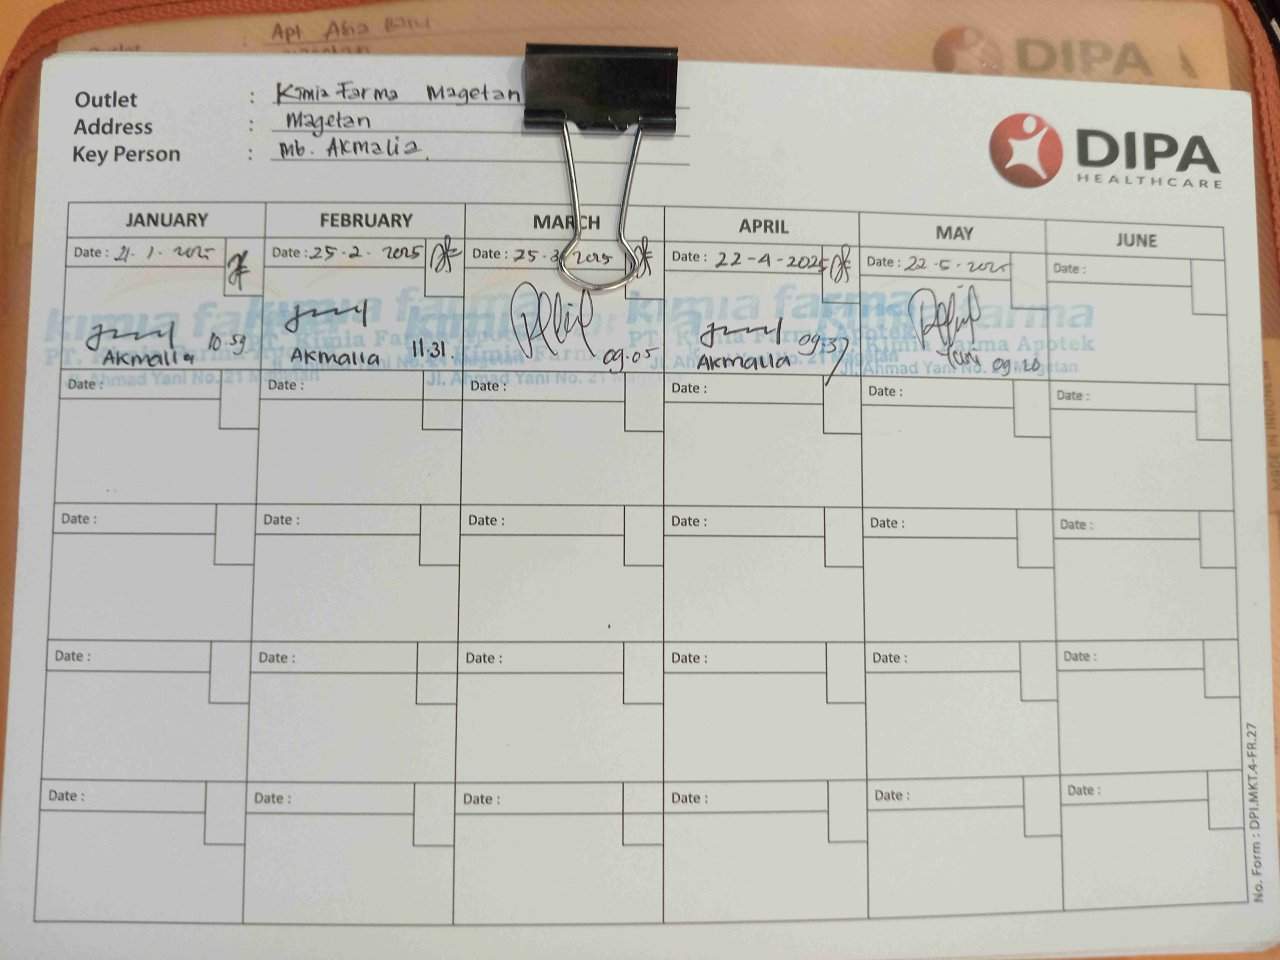 Apt Asia Baru
DIPA
Outlet : Kimia Farma Magetan
Address : Magetan
Key Person : Mb. Akmalia
DIPA
HEALTHCARE
JANUARY FEBRUARY MARCH APRIL MAY JUNE
Date : 21-1-2025 Date : 25-2-2025 Date : 25-3-2025 Date : 22-4-2025 Date : 22-5-2025 Date :
kimia farma
PT. Kimia Farma Apotek
Jl. Ahmad Yani No. 21 Magetan
Akmalia 10.59 Akmalia 11.31 09.05 Akmalia 09.37 09.20
Date : Date : Date : Date : Date : Date :
Date : Date : Date : Date : Date : Date :
Date : Date : Date : Date : Date : Date :
Date : Date : Date : Date : Date : Date :
No. Form : DPI.MKT.4-FR.27